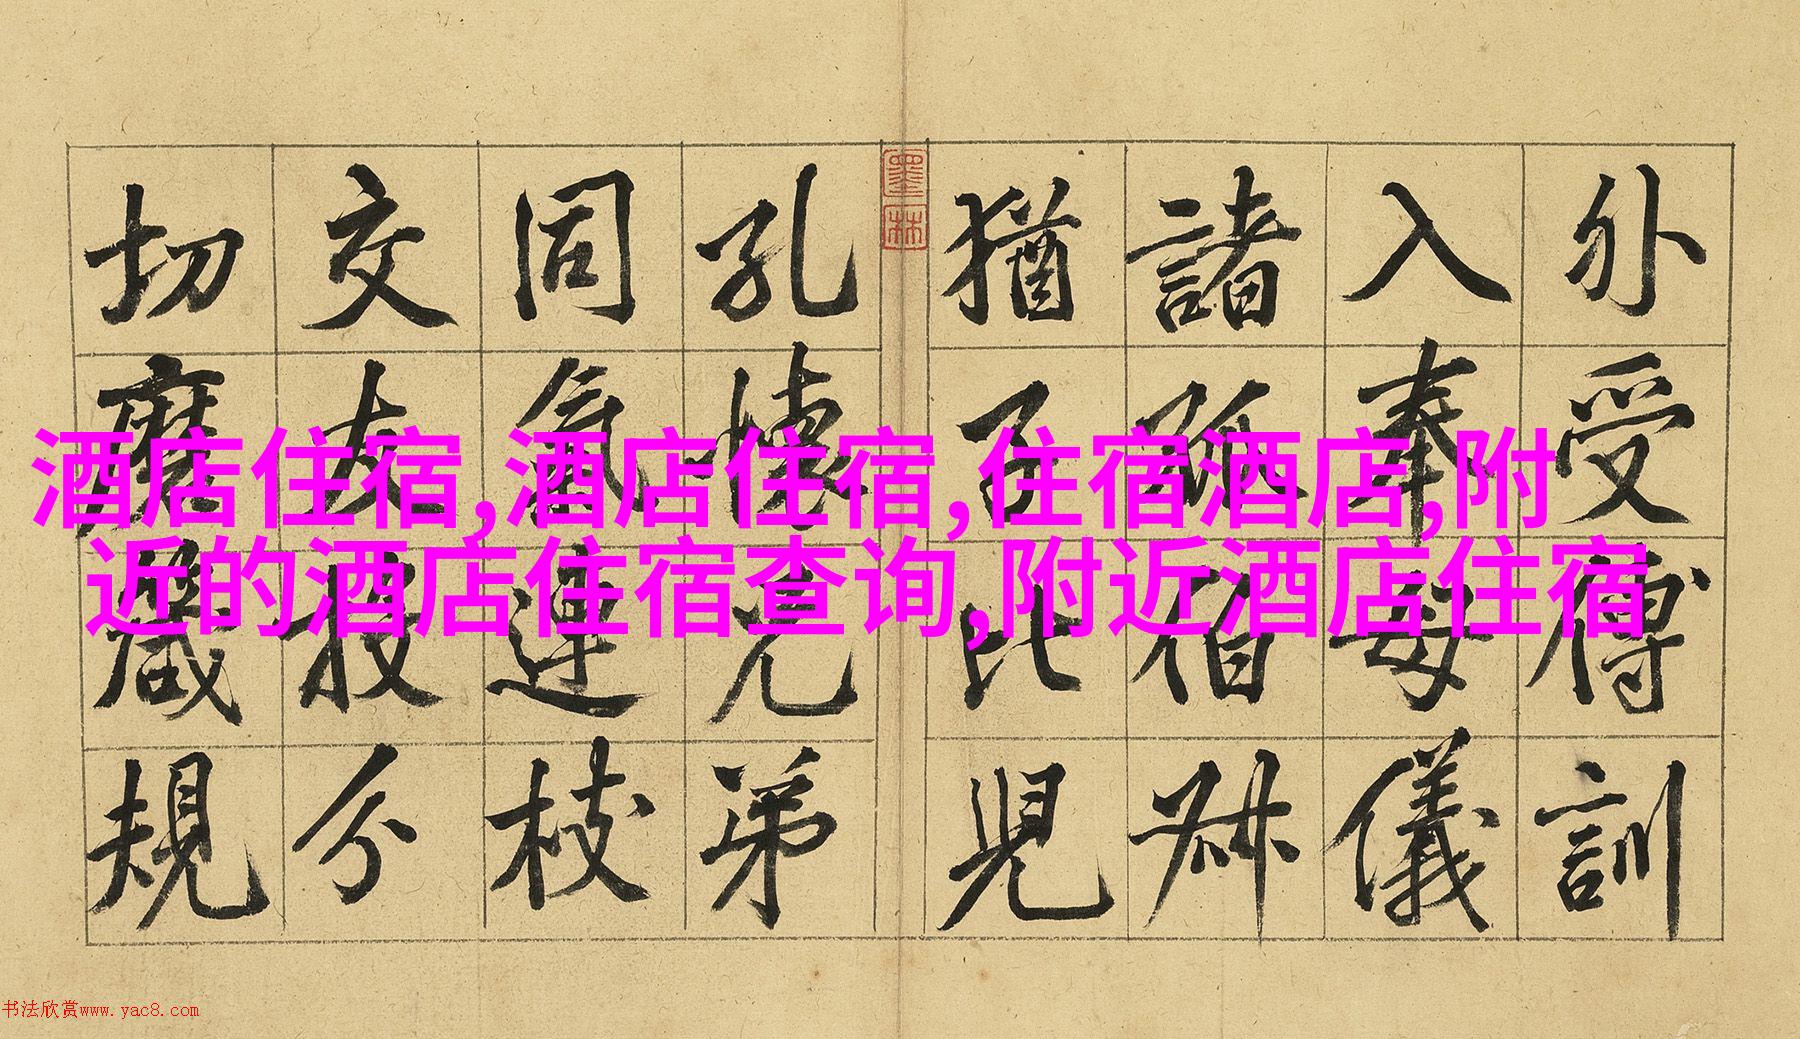 外受傅訓
入奉母儀
諸姑伯叔
猶子比兒
墨林
孔懷兄弟
同氣連枝
交友投分
切磨箴規
酒店住宿,酒店住宿,住宿酒店,附
近的酒店住宿查询,附近酒店住宿
书法欣赏www.yac8.com